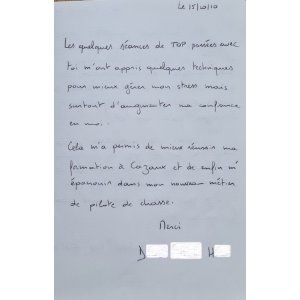 Le 15/10/10
Les quelques séances de TOP passées avec
toi m'ont appris quelques techniques
pour mieux gérer mon stress mais
surtout d'augmenter ma confiance
en moi.
Cela m'a permis de mieux réussir ma
formation à Cazaux et de enfin m'
épanouir dans mon nouveau métier
de pilote de chasse.
Merci
D H